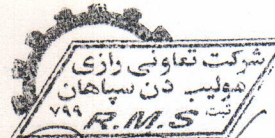 شرکت تعاونی رازی
مولیب دن سپاهان
ثبت ۷۹۹
R.M.S